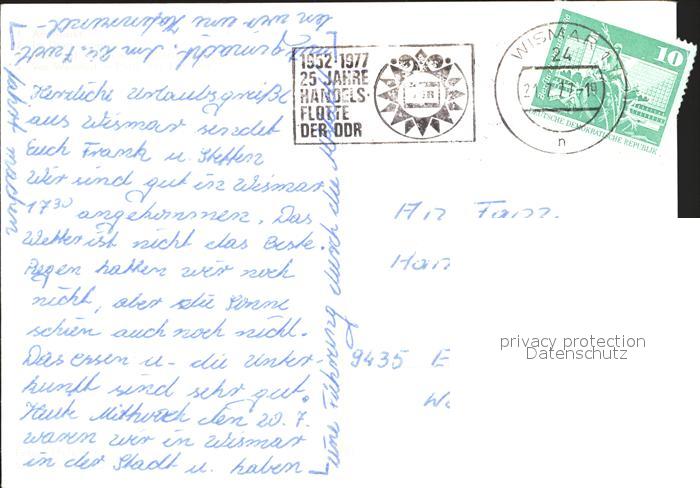 Herzliche Urlaubsgrüße
aus Wismar sendet
Euch Frank u. Steffen
Wir sind gut in Wismar
17³⁰ angekommen. Das
Wetter ist nicht das Beste.
Regen hatten wir noch
nicht, aber die Sonne
schien auch noch nicht.
Das essen u. die Unter-
kunft sind sehr gut.
Heute Mittwoch den 20.7.
waren wir in Wismar
in der Stadt u. haben
eine Führung durch die
gemacht. Am
fahrt machen
1952-1977
25 JAHRE
HANDELS-
FLOTTE
DER DDR
WISMAR
24
21.7.77-19
n
10
DEUTSCHE DEMOKRATISCHE REPUBLIK
An Fam.
Han
9435 E
privacy protection
Datenschutz